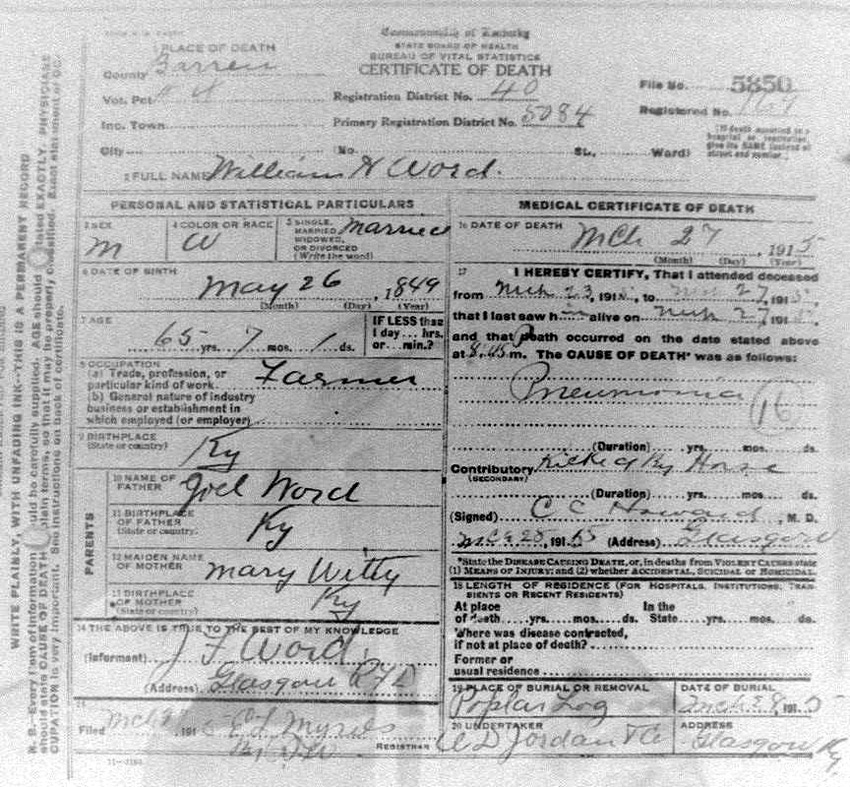 Commonwealth of Kentucky
STATE BOARD OF HEALTH
BUREAU OF VITAL STATISTICS
CERTIFICATE OF DEATH
1 PLACE OF DEATH
County Barren
Vot. Pct
Inc. Town
City
Registration District No. 40
Primary Registration District No. 5084
File No. 5850
Registered No.
(No. St., Ward)
2 FULL NAME William H Word.
PERSONAL AND STATISTICAL PARTICULARS
3 SEX M
4 COLOR OR RACE W
5 SINGLE, MARRIED, WIDOWED, OR DIVORCED (Write the word) Married
6 DATE OF BIRTH
May 26, 1849
(Month) (Day) (Year)
7 AGE
65 yrs. 7 mos. 1 ds.
IF LESS than 1 day... hrs. or... min.?
8 OCCUPATION
(a) Trade, profession, or particular kind of work. Farmer
(b) General nature of industry business or establishment in which employed (or employer)
9 BIRTHPLACE (State or country) Ky
PARENTS
10 NAME OF FATHER Joel Word
11 BIRTHPLACE OF FATHER (State or country) Ky
12 MAIDEN NAME OF MOTHER Mary Witty
13 BIRTHPLACE OF MOTHER (State or country) Ky
14 THE ABOVE IS TRUE TO THE BEST OF MY KNOWLEDGE
(Informant) J F Word.
(Address) Glasgow RFD
15
Filed Mch 191 5 E. S. Myrds
REGISTRAR
11-3184
MEDICAL CERTIFICATE OF DEATH
16 DATE OF DEATH
Mch 27 1915
(Month) (Day) (Year)
17 I HEREBY CERTIFY, That I attended deceased
from Mch 23, 1915, to Mch 27, 1915,
that I last saw him alive on Mch 27, 1915
and that death occurred on the date stated above
at m. The CAUSE OF DEATH* was as follows:
Pneumonia
16
(Duration) yrs. mos. ds.
Contributory Kicked By Horse
(SECONDARY)
(Duration) yrs. mos. ds.
(Signed) C C Howard, M. D.
Mch 28, 1915 (Address) Glasgow
*State the DISEASE CAUSING DEATH, or, in deaths from VIOLENT CAUSES state
(1) MEANS OF INJURY; and (2) whether ACCIDENTAL, SUICIDAL or HOMICIDAL.
18 LENGTH OF RESIDENCE (FOR HOSPITALS, INSTITUTIONS, TRANSIENTS OR RECENT RESIDENTS)
At place of death yrs. mos. ds. In the State yrs. mos. ds.
Where was disease contracted, if not at place of death?
Former or usual residence
19 PLACE OF BURIAL OR REMOVAL
Poplar Log
DATE OF BURIAL
Mch 28, 1915
20 UNDERTAKER
W D Jordan & Co
ADDRESS
Glasgow Ky.
WRITE PLAINLY, WITH UNFADING INK—THIS IS A PERMANENT RECORD